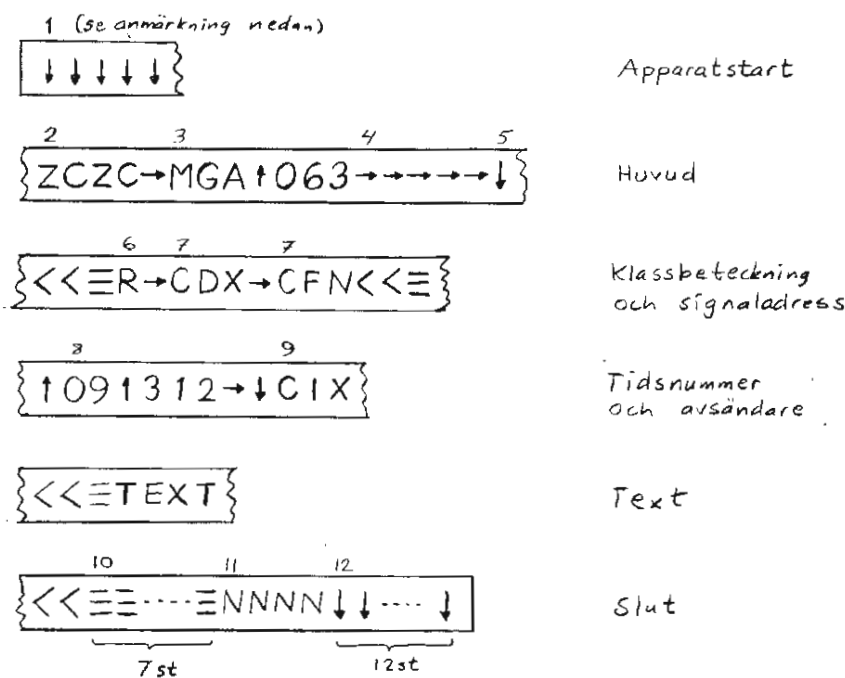 1 (se anmärkning nedan)
↓ ↓ ↓ ↓ ↓ Apparatstart
2 3 4 5
ZCZC→MGA↑063→→→→→↓ Huvud
6 7 7
<<≡R→CDX→CFN<<≡ Klassbeteckning
och signaladress
8 9
↑091312→↓CIX Tidsnummer
och avsändare
<<≡TEXT Text
10 11 12
<<≡≡····≡NNNN↓↓····↓ Slut
7 st 12 st